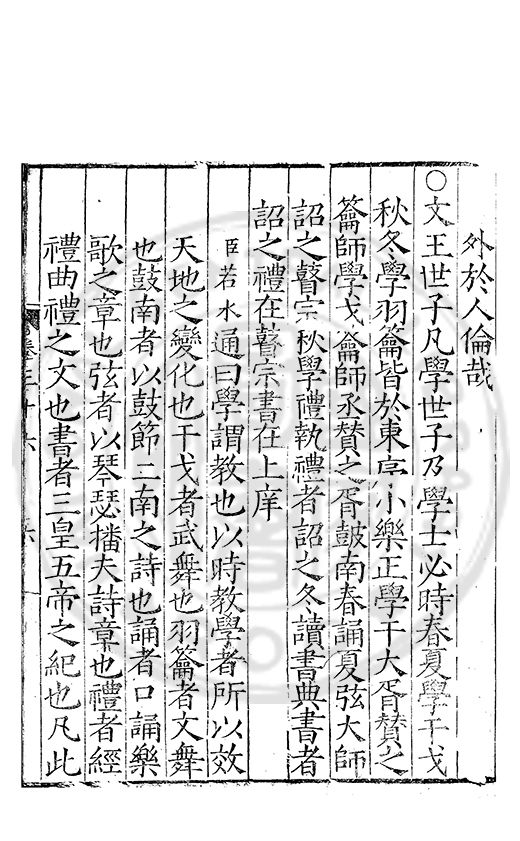 外於人倫哉
○文王世子凡學世子及學士必時春夏學干戈
秋冬學羽籥皆於東序小樂正學干大胥贊之
籥師學戈籥師丞贊之胥鼓南春誦夏弦大師
詔之瞽宗秋學禮執禮者詔之冬讀書典書者
詔之禮在瞽宗書在上庠
臣若水通曰學謂教也以時教學者所以效
天地之變化也干戈者武舞也羽籥者文舞
也鼓南者以鼓節二南之詩也誦者口誦樂
歌之章也弦者以琴瑟播夫詩章也禮者經
禮曲禮之文也書者三皇五帝之紀也凡此
卷三十六
六